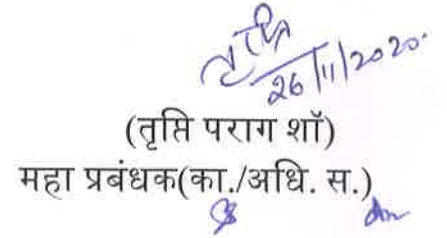 तृप्ति
26/11/2020.
(तृप्ति पराग शॉ)
महा प्रबंधक(का./अधि. स.)